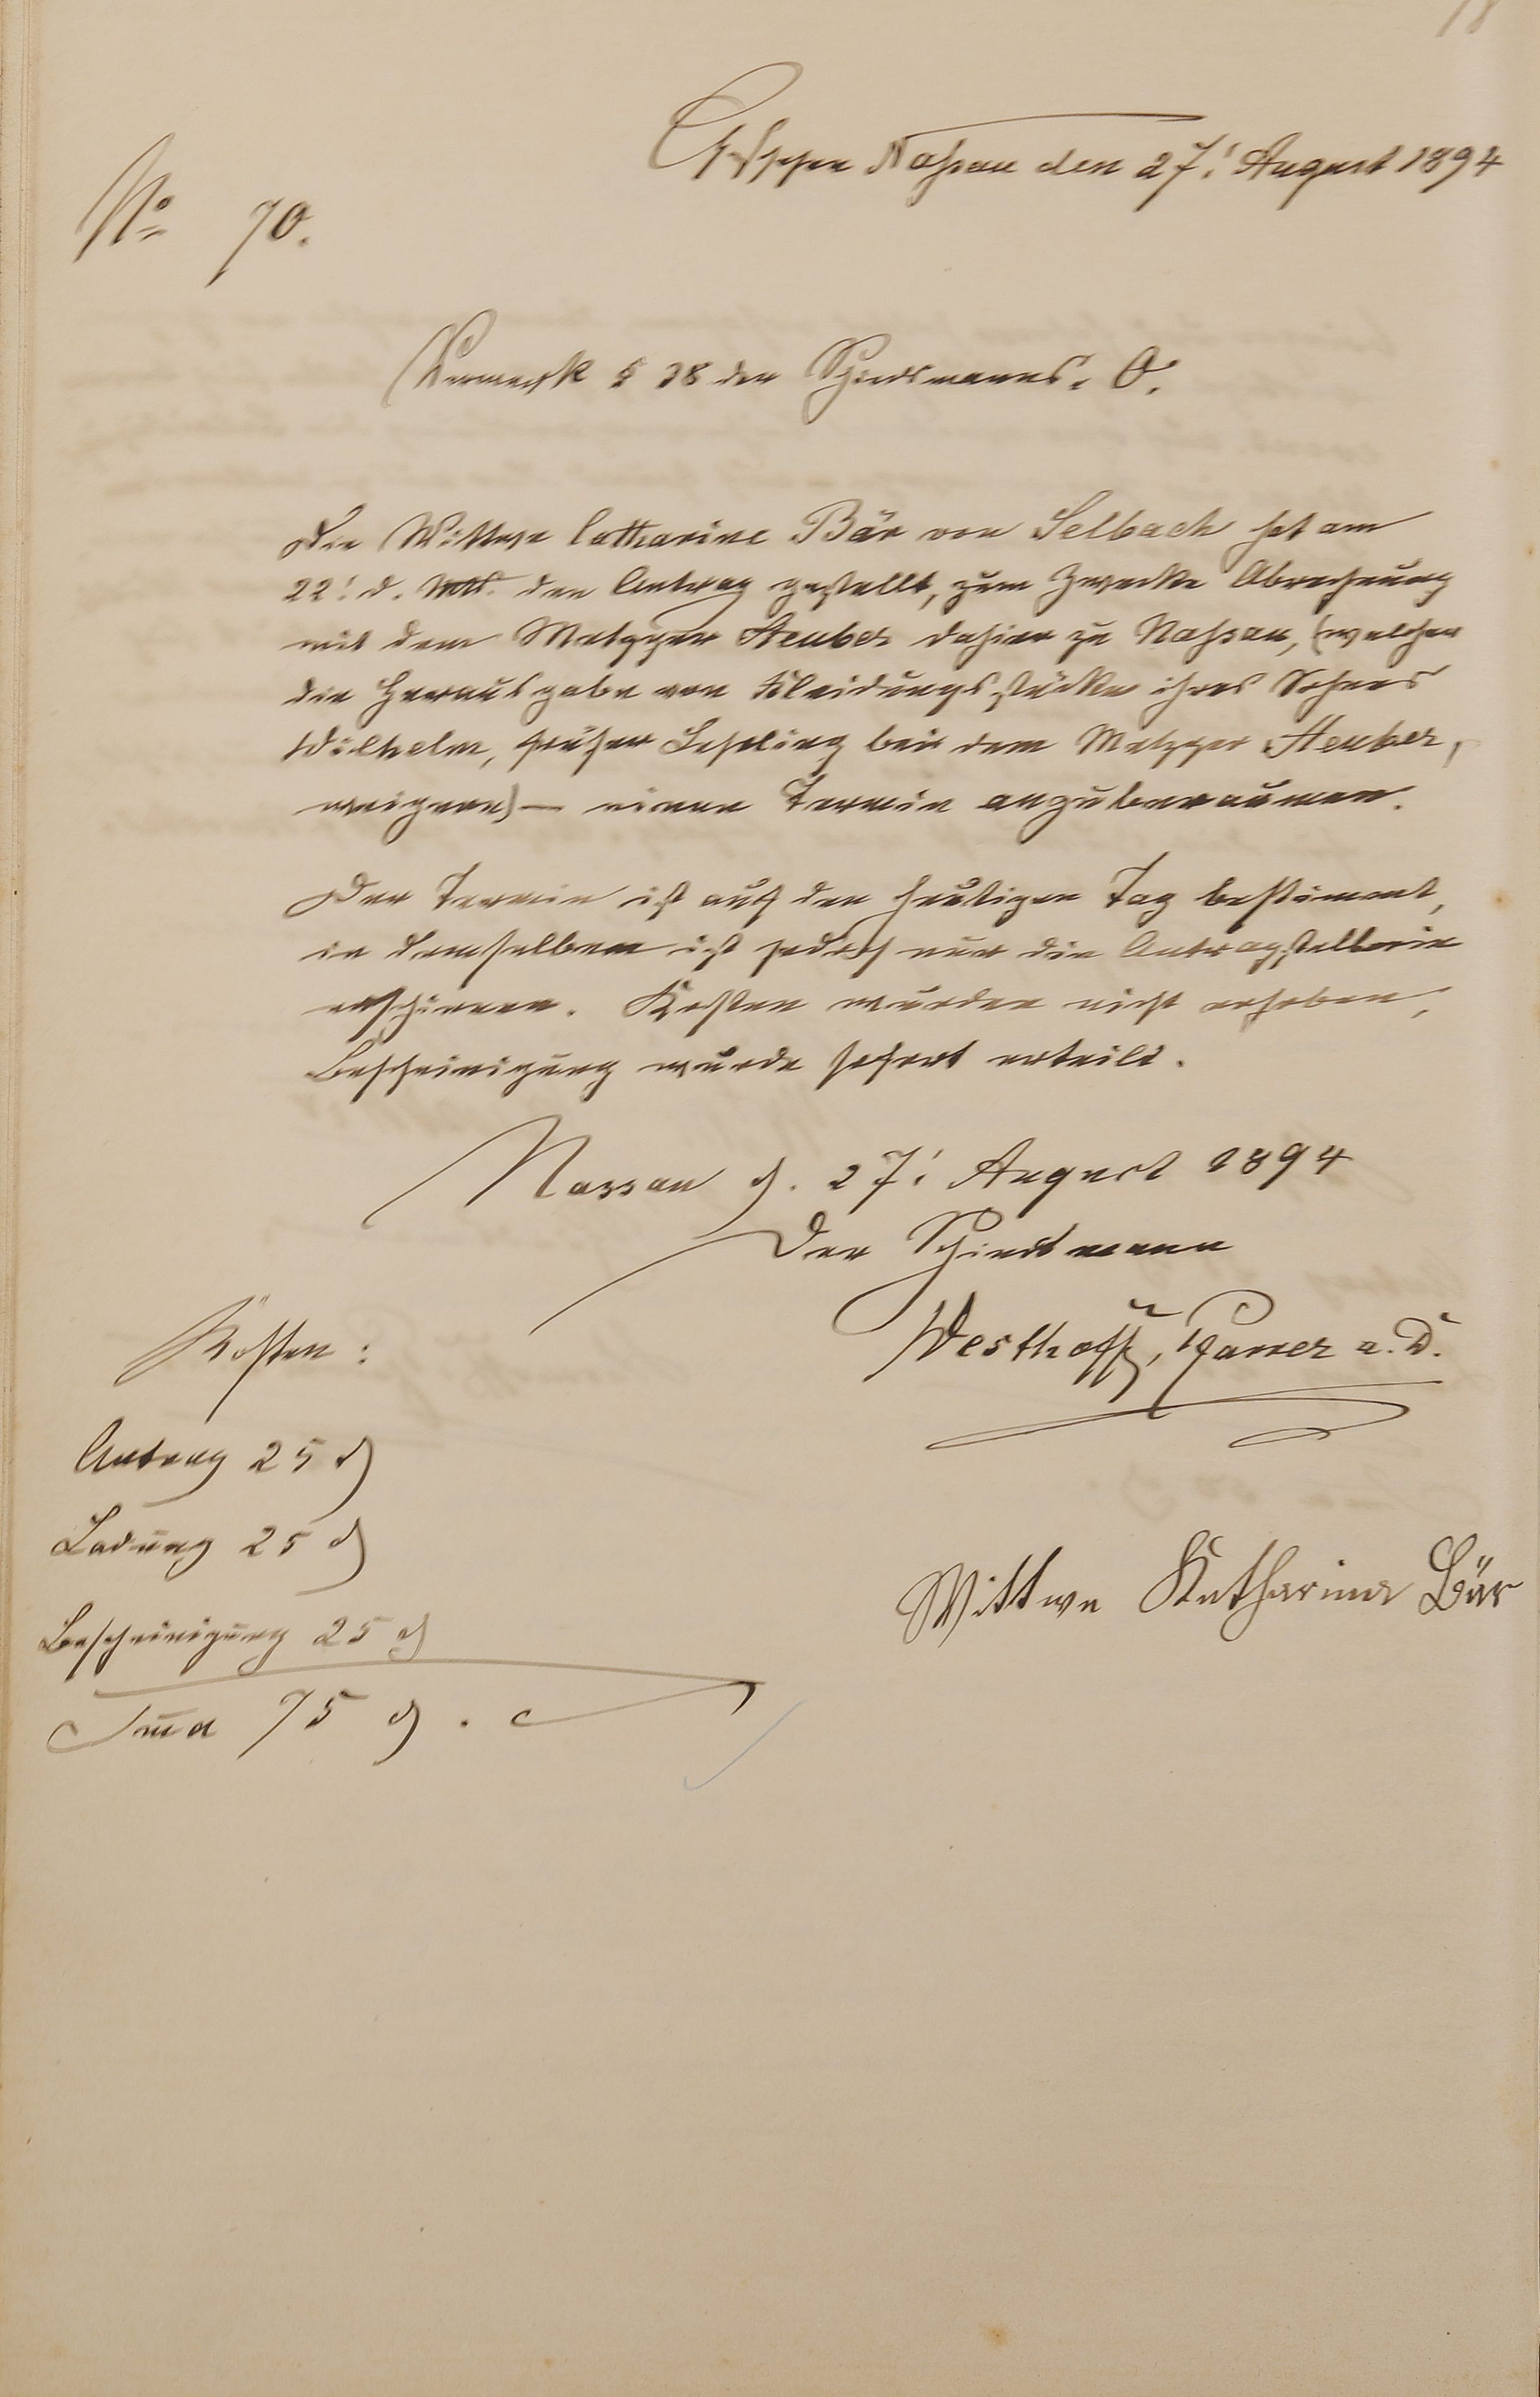 18
Geschehen Nassau den 27! August 1894
No 70.
Vermerk § 38 der Schiedsmanns. O.
Die Wittwe Catharine Bär von Selbach hat am
22! d. Mts. den Antrag gestellt, zum Zwecke Abrechnung
mit dem Metzger Heuber dahier zu Nassau, (welcher
die Herausgabe von Kleidungsstücke ihres Sohnes
Wilhelm, früher Lehrling bei dem Metzger Heuber,
weigere) — einen Termin anzuberaumen.
Der Termin ist auf den heutigen Tag bestimmt,
in demselben ist jedoch nur die Antragstellerin
erschienen. Kosten wurden nicht erhoben,
Bescheinigung wurde sofort erteilt.
Nassau d. 27! August 1894
Der Schiedsmann
Westhoff, Pfarrer a. D.
Kosten:
Antrag 25 ₰
Ladung 25 ₰
Bescheinigung 25 ₰
Sma 75 ₰.
Wittwe Katharina Bär